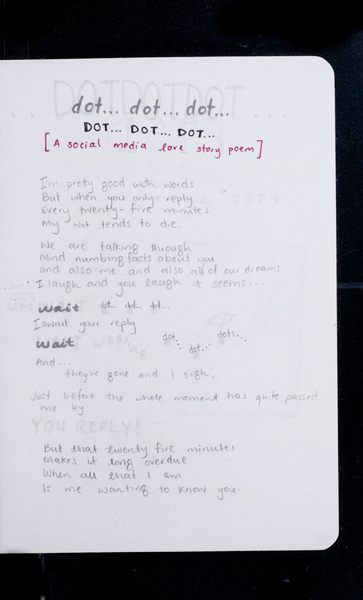 dot... dot... dot...
DOT... DOT... DOT...
[A social media love story poem]
I'm pretty good with words
But when you only reply
Every twenty-five minutes
My wit tends to die.
We are talking through
Mind numbing facts about you
and also me and also all of our dreams.
I laugh and you laugh it seems...
wait dot.. dot.. dot...
I await your reply
wait dot... dot... dots...
And...
they're gone and I sigh.
Just before the whole moment has quite passed
me by
YOU REPLY!
But that twenty five minutes
Makes it long overdue
When all that I am
Is me wanting to know you.